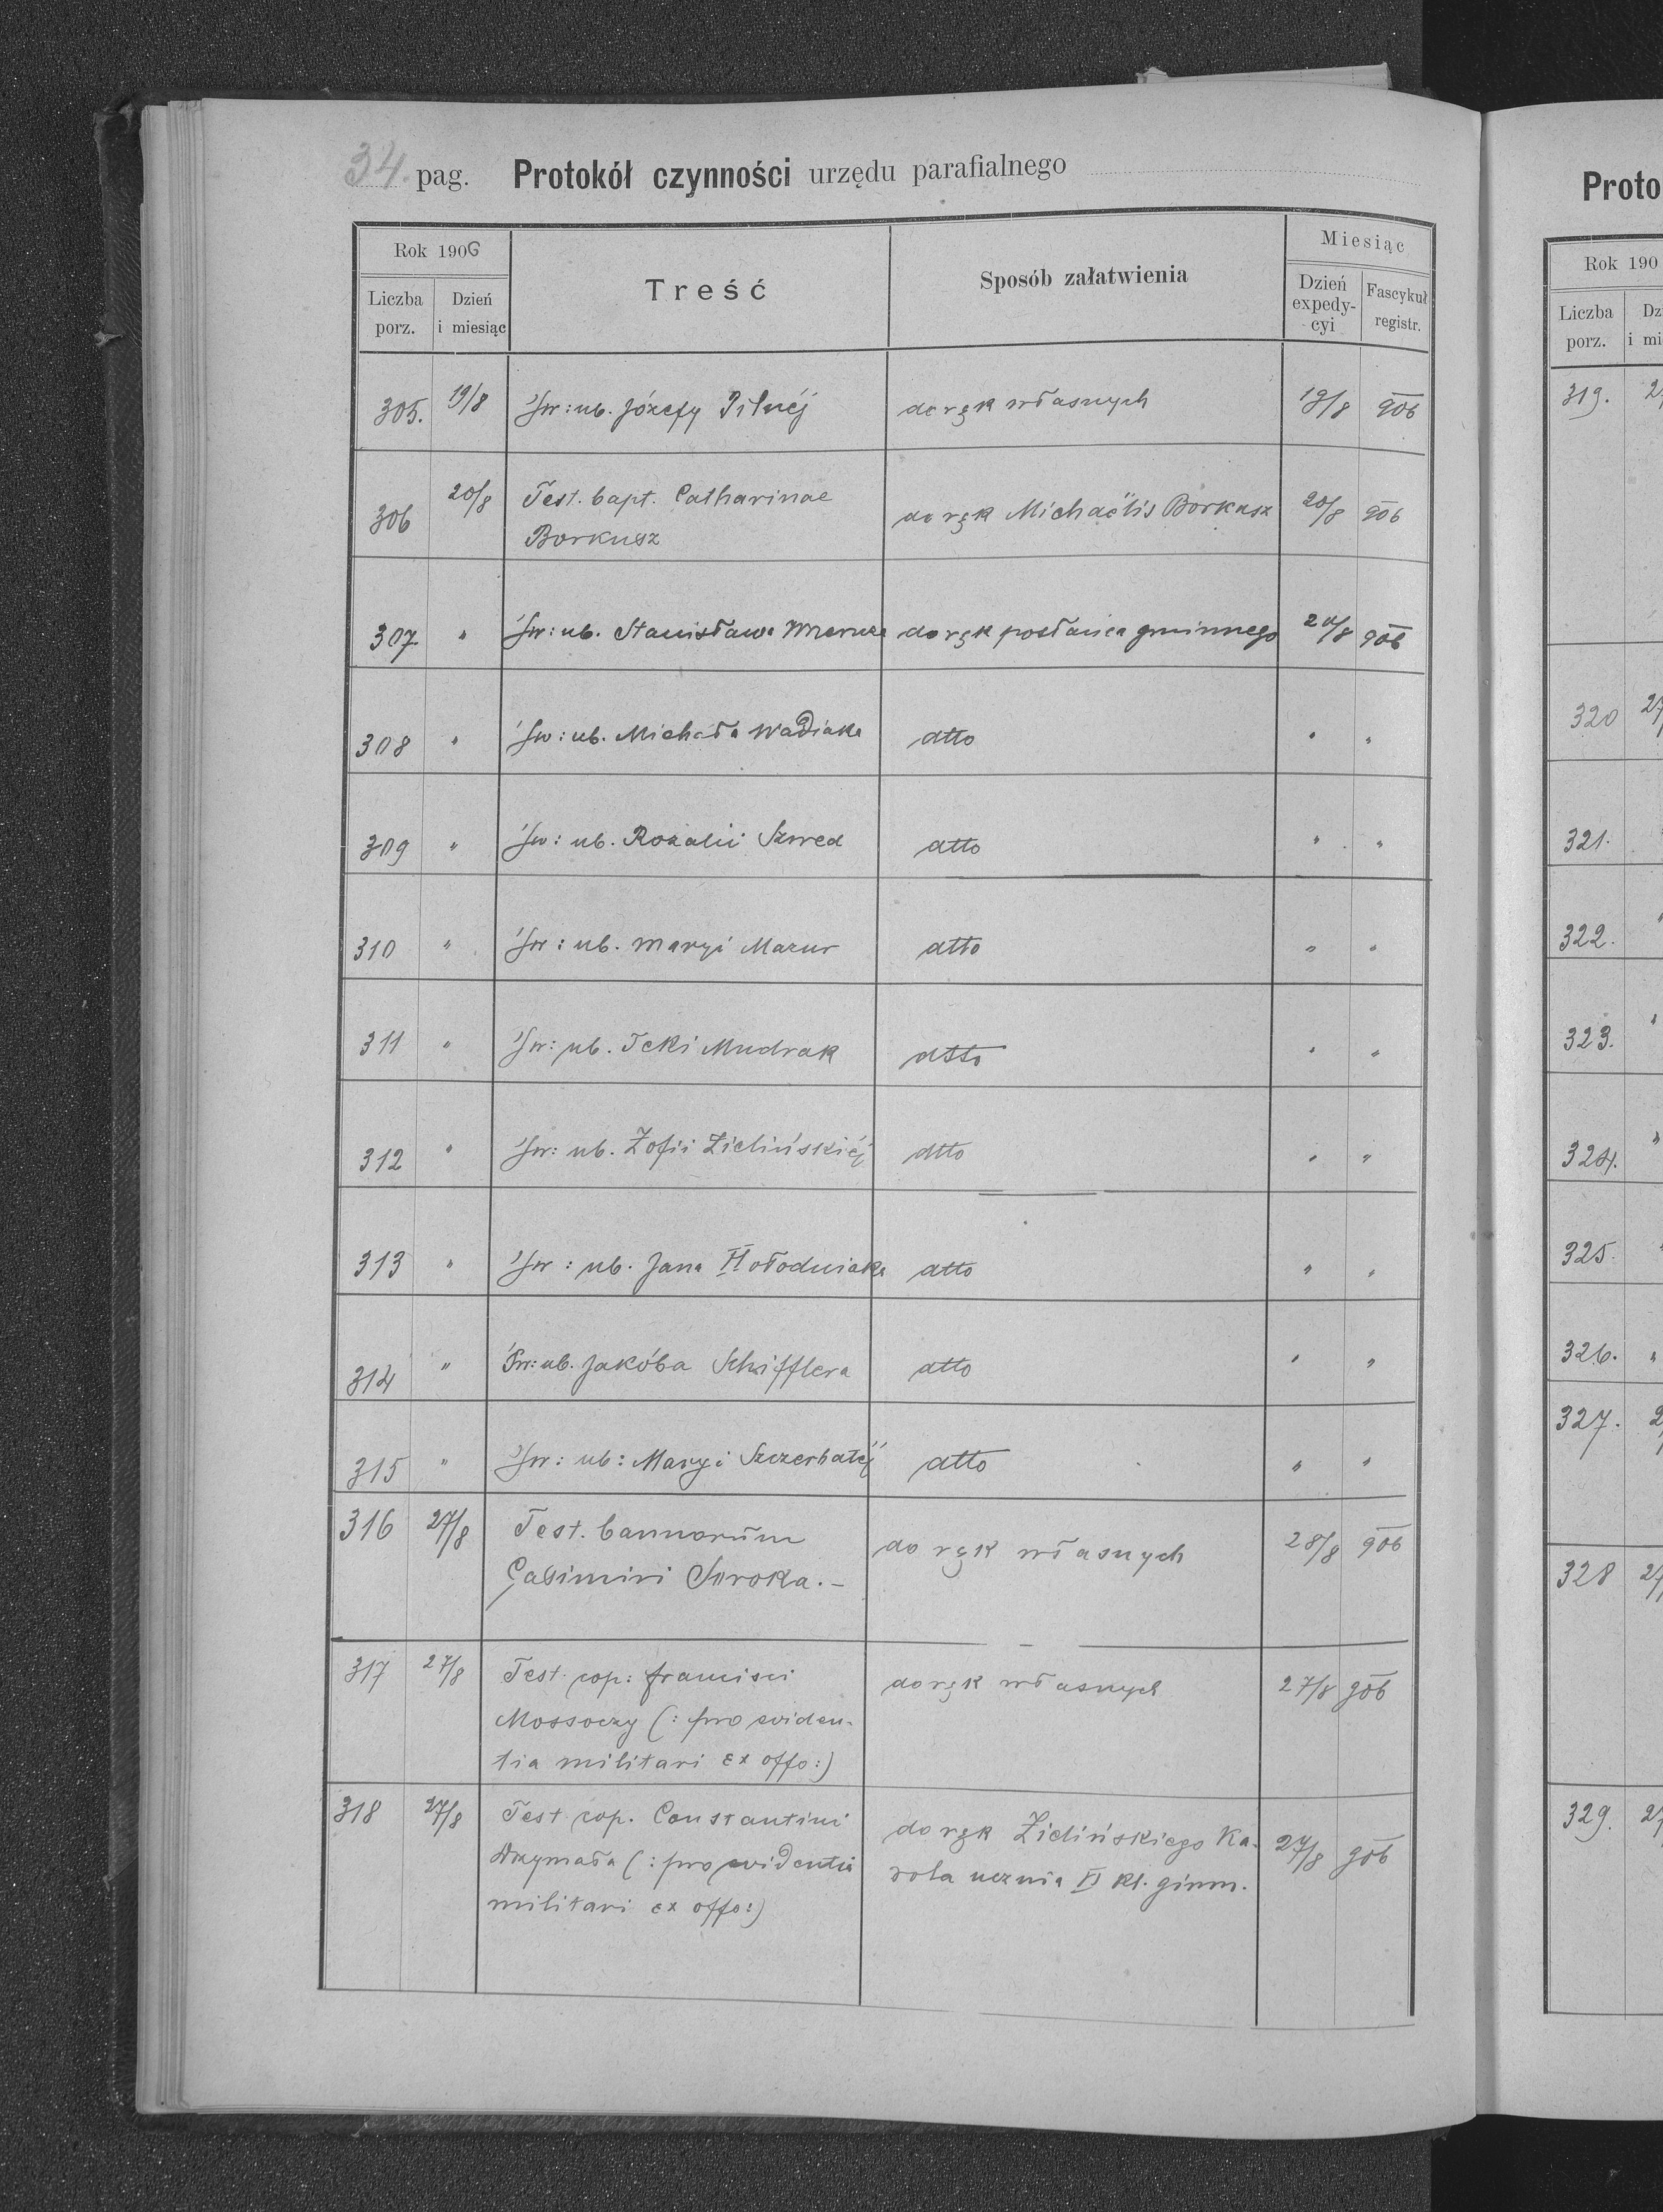 34. pag. Protokół czynności urzędu parafialnego
Rok 1906
Liczba porz.
Dzień i miesiąc
Treść
Sposób załatwienia
Miesiąc
Dzień expedy-cyi
Fascykuł registr.
305. 19/8 Św: ub. Józefy Pilnéj do rąk własnych 19/8 906
306 20/8 Test. bapt. Catharinae do rąk Michaëlis Borkusz 20/8 906
Borkusz
307 " Św: ub. Stanisława do rąk posłańca gminnego 20/8 906
308 " Św: ub. Michała Wadiaka dtto " "
309 " Św: ub. Rozalii Szwed dtto " "
310 " Św: ub. Maryi Mazur dtto " "
311 " Św: ub. Teki Mudrak dtto " "
312 " Św: ub. Zofii Zielińskiéj dtto " "
313 " Św: ub. Jana Hołodniaka dtto " "
314 " Św: ub. Jakóba Schifflera dtto " "
315 " Św: ub: Maryi Szczerbatéj dtto " "
316 27/8 Test. bannorūm do rąk własnych 28/8 906
Casimiri Soroka. –
317 27/8 Test. cop: Francisci do rąk własnych 27/8 906
Mossoczy (: pro eviden-
tia militari ex offo:)
318 27/8 Test cop. Constantini do rąk Zielińskiego Ka- 27/8 906
Drzymała (: pro evidentia rola ucznia II kl. gimn.
militari ex offo:)
Proto
Rok 190
Liczba porz.
Dz
i mi
319. 2
320 27
321.
322. "
323. "
324. "
325.
326. "
327. 2
328 27
329. 27